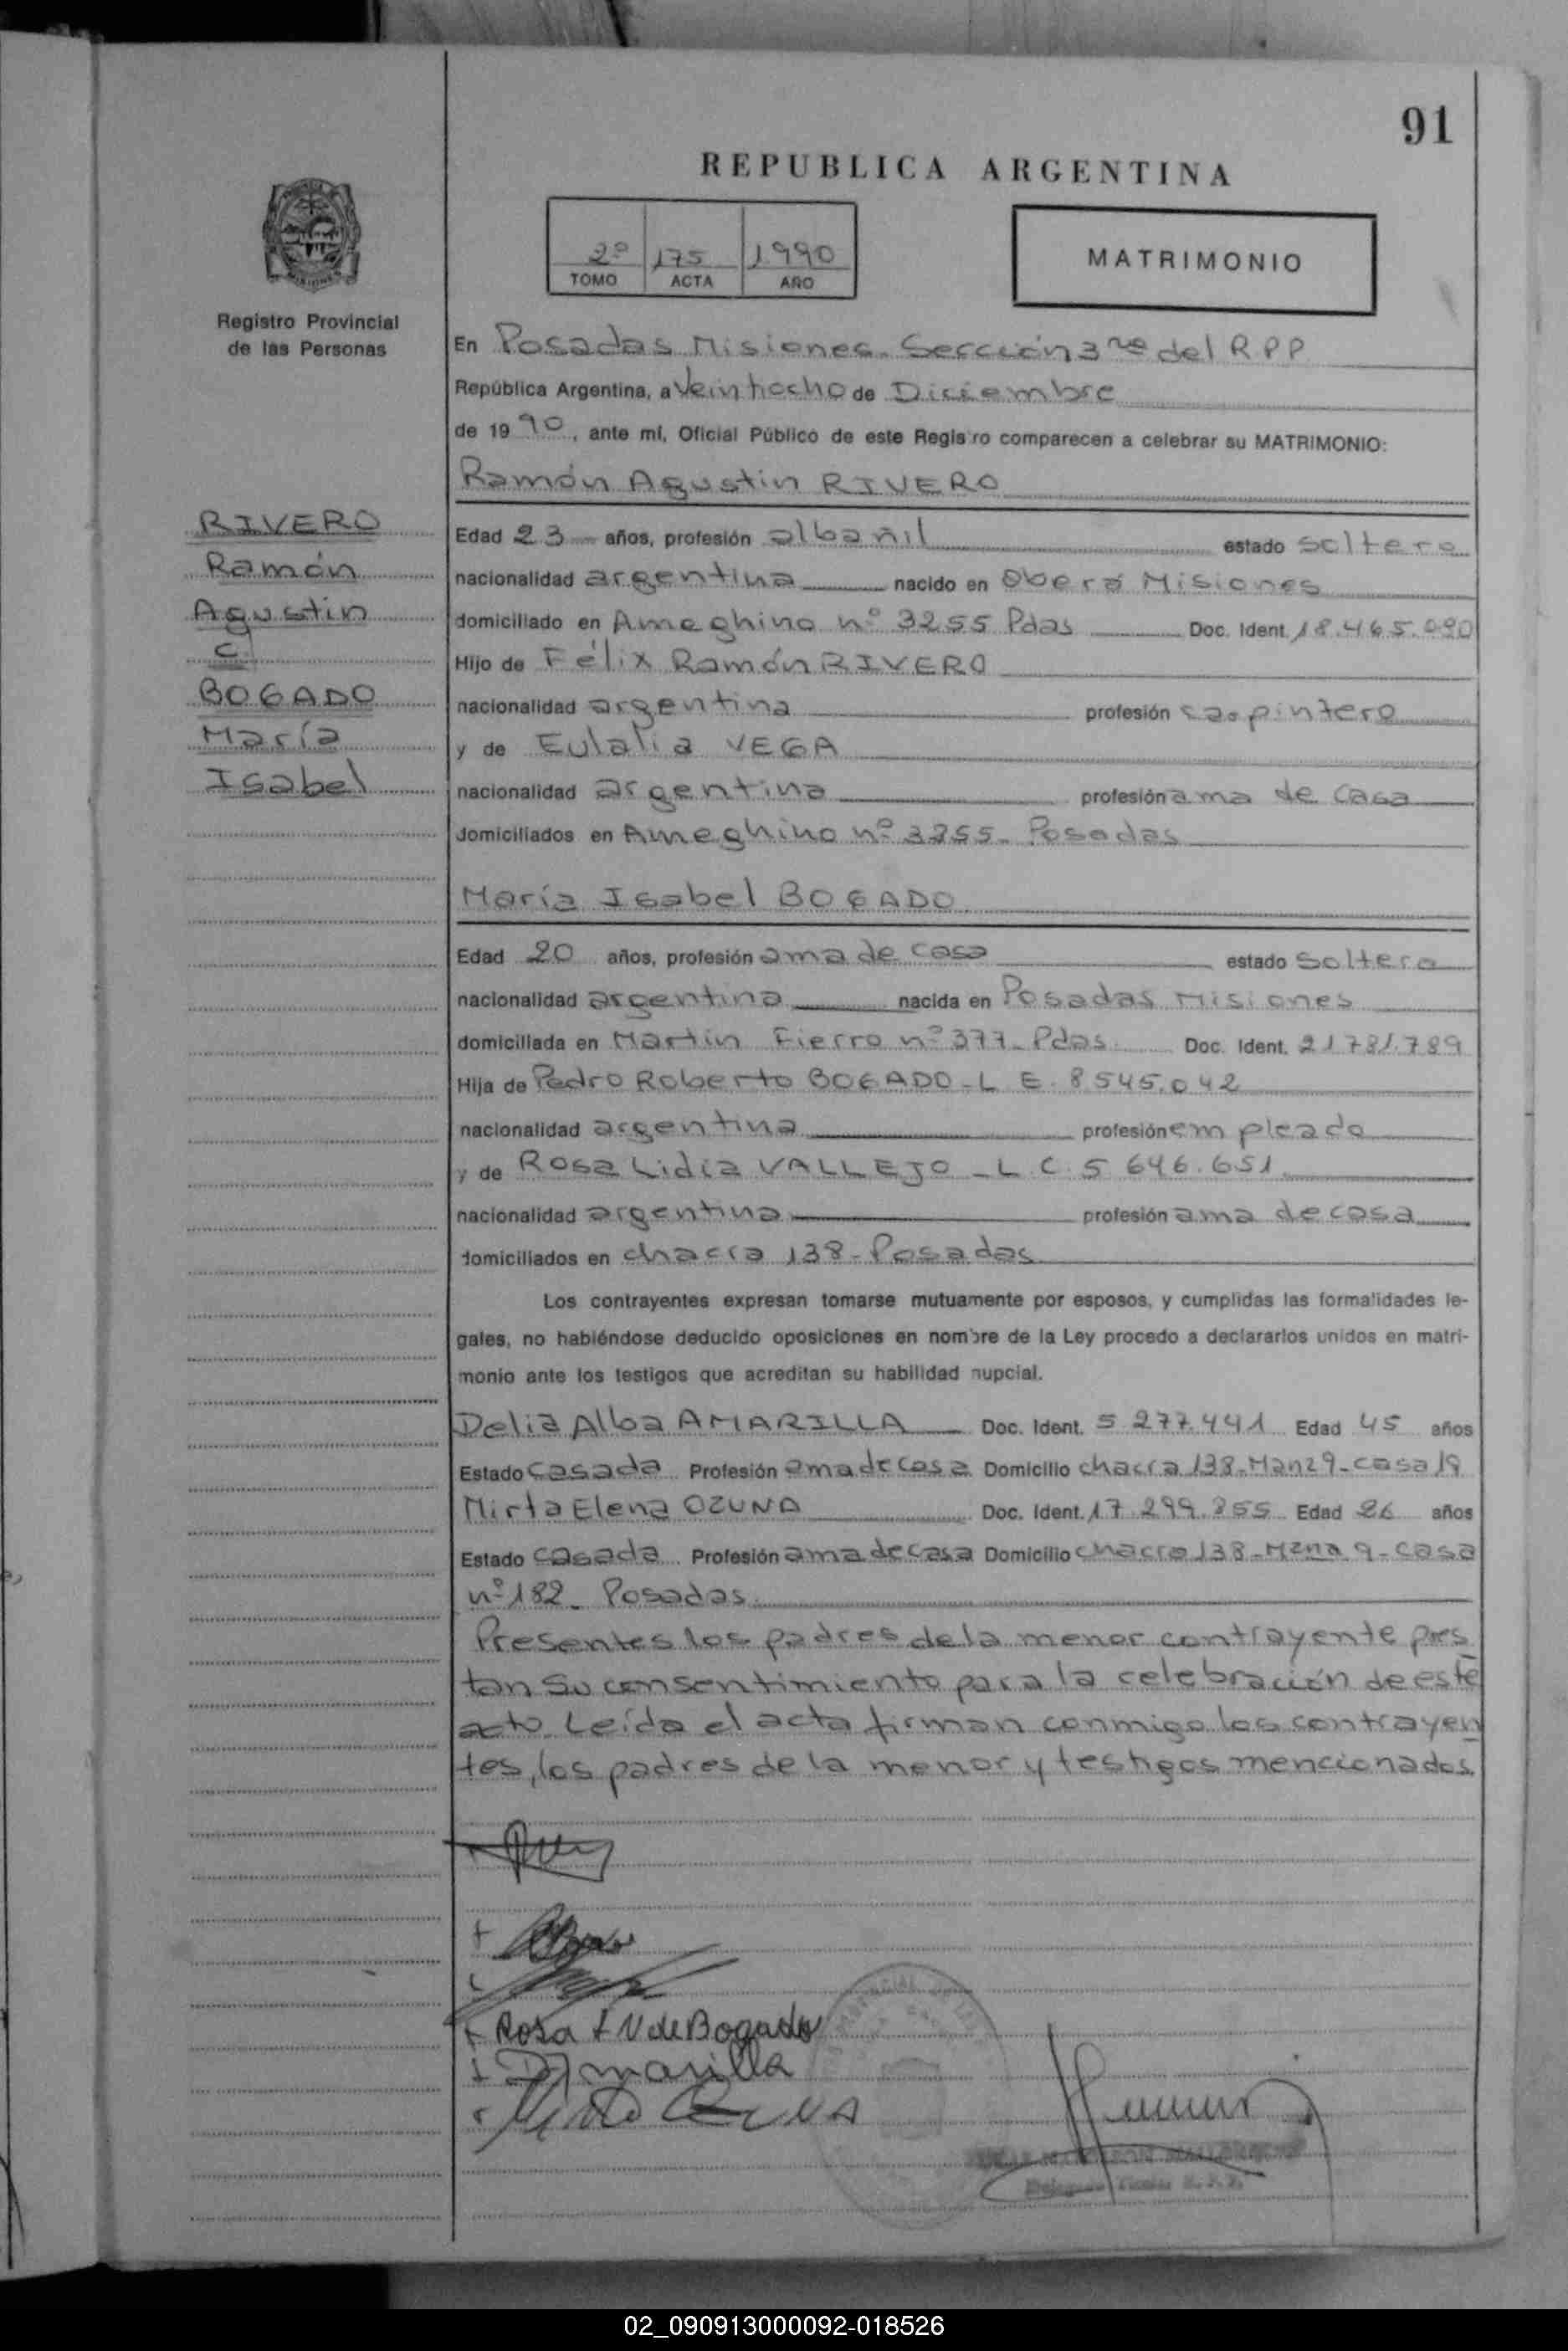 91
REPUBLICA ARGENTINA
2º 175 1990
TOMO ACTA AÑO
MATRIMONIO
Registro Provincial
de las Personas
En Posadas Misiones. Sección 3ra del R P P
República Argentina, a Veintiocho de Diciembre
de 19 90, ante mí, Oficial Público de este Registro comparecen a celebrar su MATRIMONIO:
Ramón Agustin RIVERO
RIVERO
Ramón
Agustin
C.
BOGADO
María
Isabel
Edad 23 años, profesión albañil estado soltero
nacionalidad argentina nacido en Oberá Misiones
domiciliado en Ameghino nº 3255 Pdas Doc. Ident. 18.465.090
Hijo de Félix Ramón RIVERO
nacionalidad argentina profesión carpintero
y de Eulalia VEGA
nacionalidad argentina profesión ama de casa
domiciliados en Ameghino nº 3255- Posadas
María Isabel BOGADO
Edad 20 años, profesión ama de casa estado soltera
nacionalidad argentina nacida en Posadas Misiones
domiciliada en Martin Fierro nº 377- Pdas. Doc. Ident. 21.781.789
Hija de Pedro Roberto BOGADO- L E. 8 545.042
nacionalidad argentina profesión empleado
y de Rosa Lidia VALLEJO - L.C. 5 646.651
nacionalidad argentina profesión ama de casa
domiciliados en chacra 138- Posadas
Los contrayentes expresan tomarse mutuamente por esposos, y cumplidas las formalidades le-
gales, no habiéndose deducido oposiciones en nombre de la Ley procedo a declararlos unidos en matri-
monio ante los testigos que acreditan su habilidad nupcial.
Delia Alba AMARILLA Doc. Ident. 5 277.441 Edad 45 años
Estado casada Profesión ama de casa Domicilio chacra 138-Manz 9-casa 19
Mirta Elena OZUNA Doc. Ident. 17.299.855 Edad 26 años
Estado casada Profesión ama de casa Domicilio chacra 138-Mzna 9-casa
nº 182- Posadas.
Presentes los padres de la menor contrayente pres
tan su consentimiento para la celebración de este
acto. Leída el acta firman conmigo los contrayen
tes, los padres de la menor y testigos mencionados.
Rosa L V de Bogado
D Amarilla
02_090913000092-018526